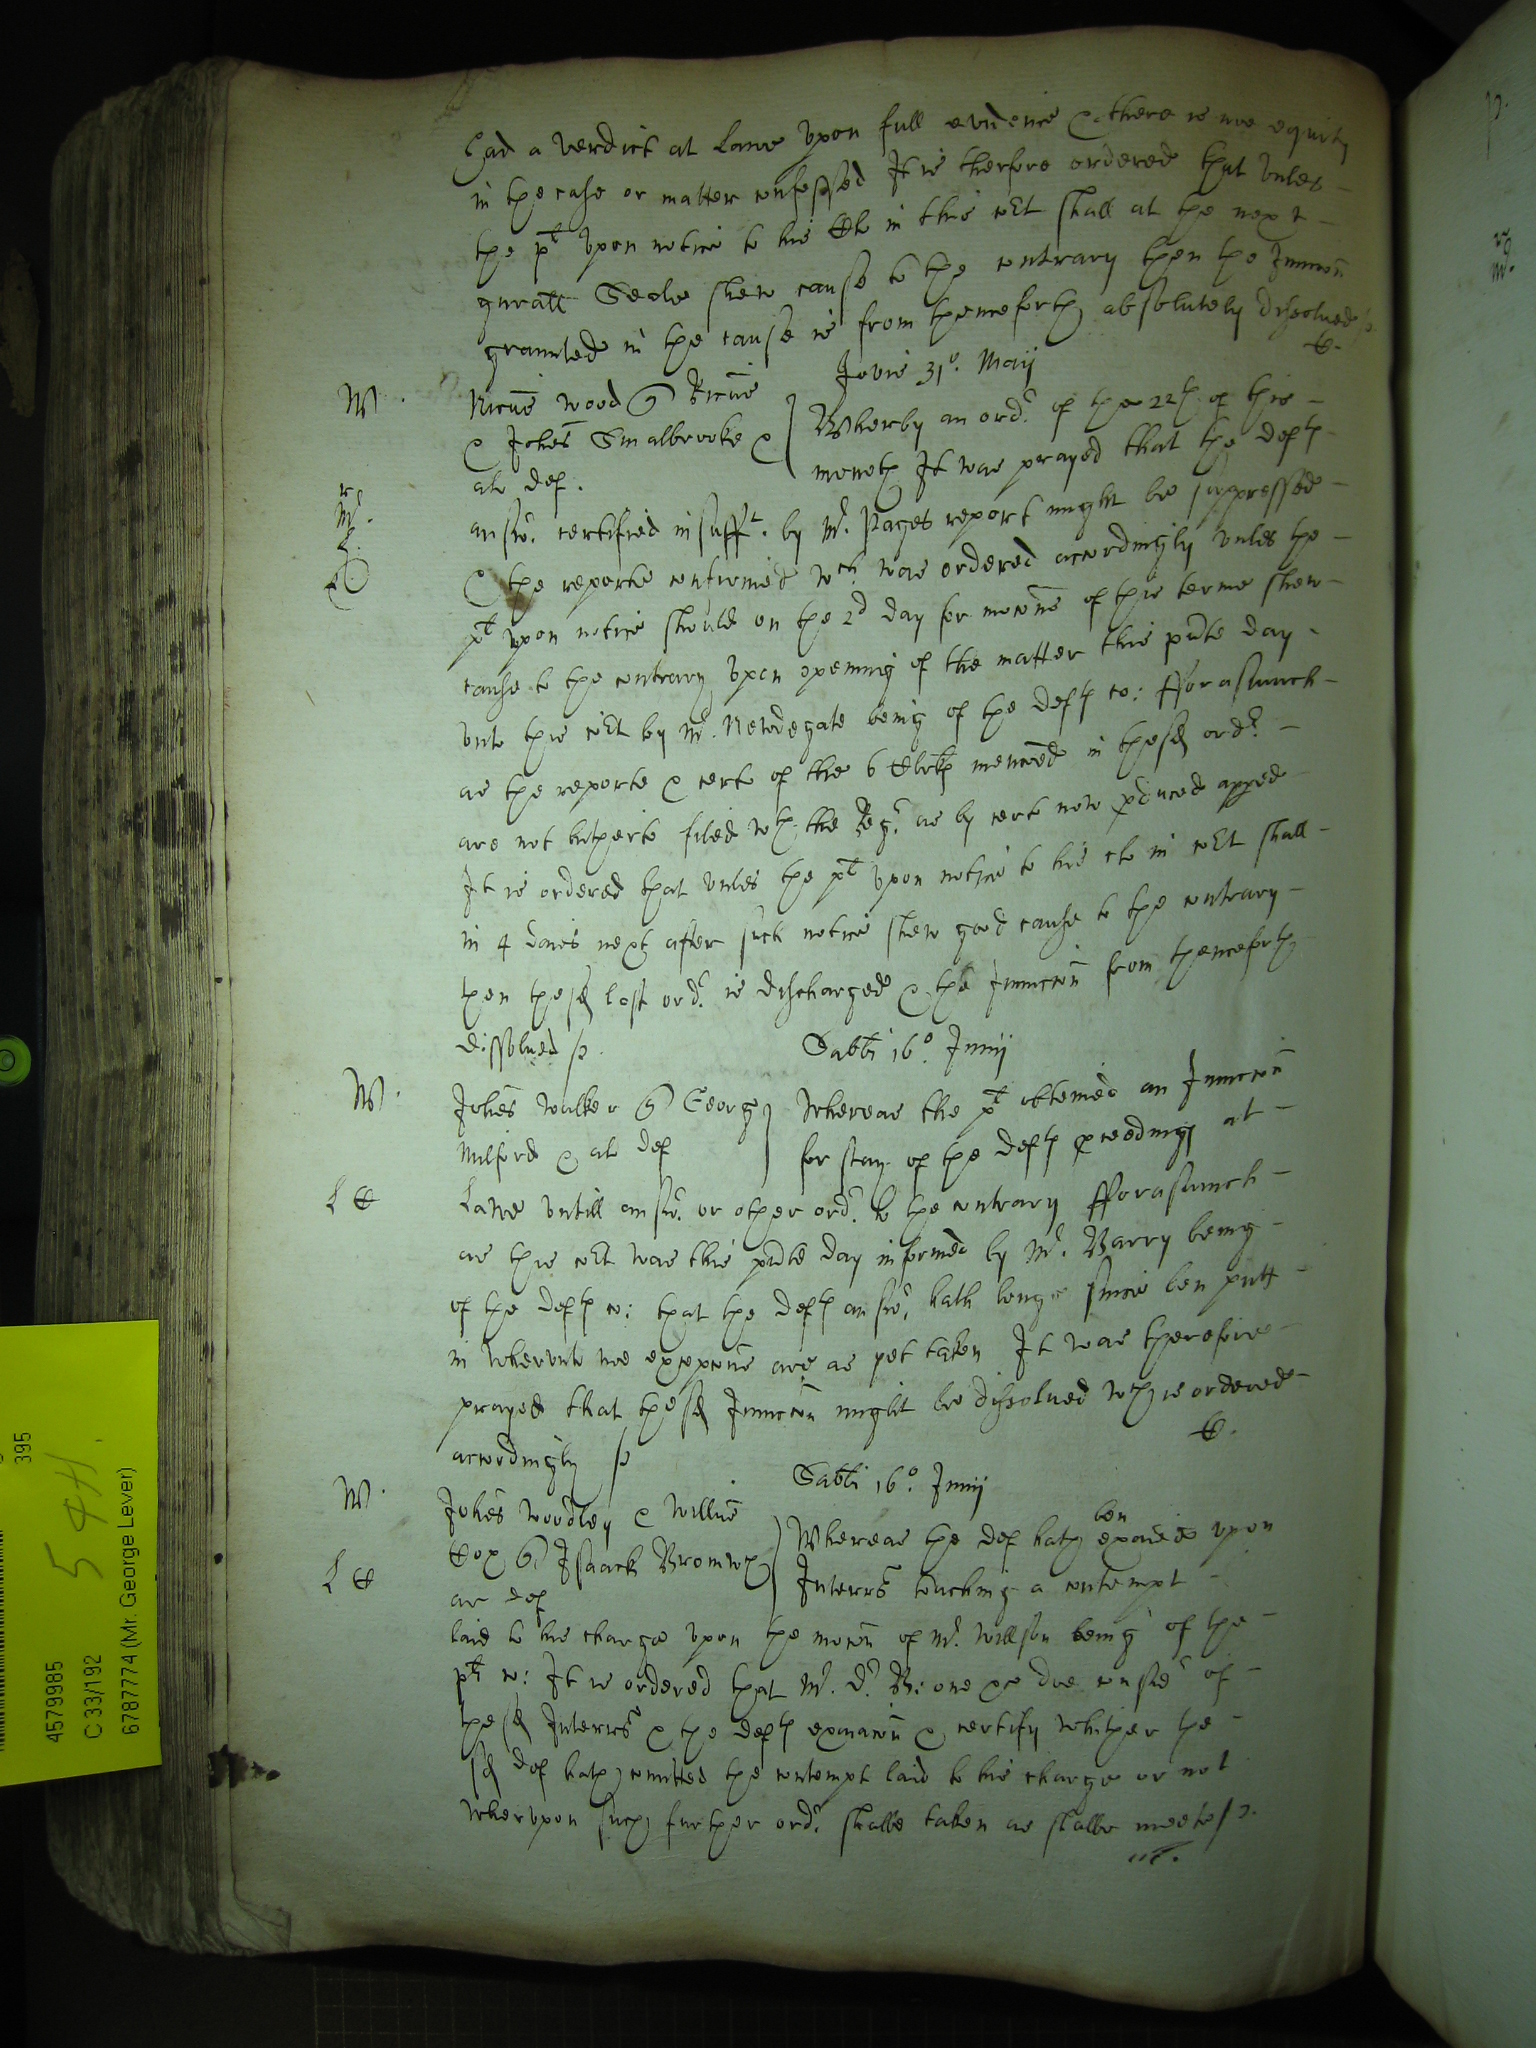 had a verdict at Lawe upon full evidence & there is noe equity
in the case or matter confessed It is therfore ordered that unles
the plt upon notice to his Clo in this cort shall at the next
gnrall Seale shew cause to the contrary then the Iniunccon
graunted in the cause is from thenceforth absolutely dissolved
Jovis 31°. Maij
W.
Nicus Wood Ricus
& Johes Smalbrooke &
als def.
Wherby an ordr of the 22th of this
moneth It was prayed that the defts
answr. certified insufft. by Mr. Pages report might be suppressed
& the reporte confirmed wch was ordered accordingly unles the
plt upon notice should on the 2d day for mocons of this terme shew
cause to the contrary upon openinge of the matter this pnte day
unto this cort by Mr. Newdegate being of the defts co: fforasmuch
as the reporte & certe of the 6 Clerks menconed in the sd ordr.
are not hitherto filed wth the Regr. as by certe now pduced apped
It is ordered that unles the plt upon notice to his clo in cort shall
in 4 daies next after such notice shew good cause to the contrary
then the sd last ordr. is discharged & the Iniunccon from thenceforth
dissolved
Sabbi 16°. Junij
W.
Johes Walker George
Milford & als def
Whereas the plt obteined an Iniunccon
for stay of the defts pceedings at
L C
Lawe untill answr. or other ordr. to the contrary fforasmuch
as this cort was this pnte day informed by Mr. Barry being
of the defts co: that the defts answr. hath longe since ben putt
in wherunto noe excepcons are as yet taken It was therefore
prayed that the sd Iniunccon might be dissolved wch is ordered
accordingly
Sabbi 16°. Junij
W.
Johes Woodley & Willus
Cox Isaack Bromwch
ar def
Whereas the def hath ben exaied upon
Interrs touching a contempt
L C
laid to his charge upon the mocon of Mr. Willson being of the
plts co: It is ordered that Mr. Dr. B: one &c doe consider of
the sd Interrs & the defts exaiacon & certify whither the
sd def hath comitted the contempt laid to his charge or not
wherupon such further ordr. shalbe taken as shalbe meete
395
5 4H.
4579985
C 33/192
6787774 (Mr. George Lever)